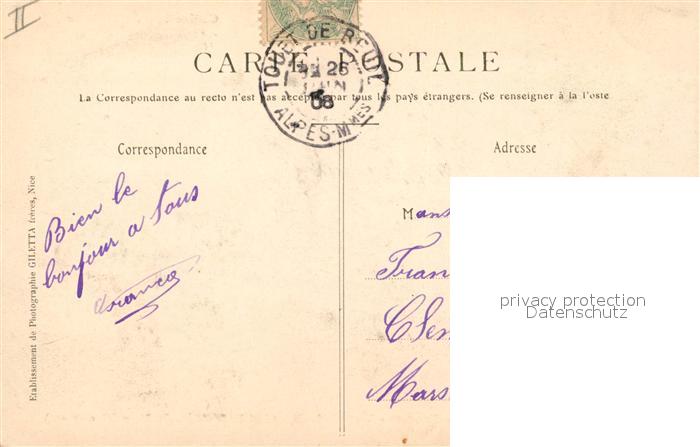 II
CARTE POSTALE
TOUËT DE BEUIL
26
JUIN
08
ALPES-Mmes
La Correspondance au recto n'est pas acceptée par tous les pays étrangers. (Se renseigner à la Poste
Correspondance
Bien le
bonjour a tous
Adresse
Mons
Fran
Mars
privacy protection
Datenschutz
Etablissement de Photographie GILETTA frères, Nice